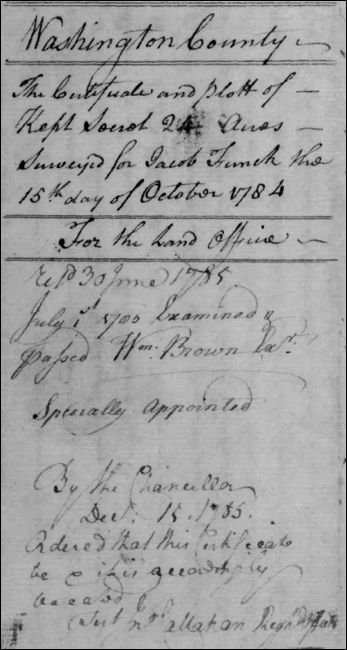 Washington County
The Certificate and Plott of
Kept Secret 24 Acres
Surveyed for Jacob Funck the
15th day of October 1784
For the Land Office
30 June 1785
July 1st Examined &
passed Wm. Brown Exr.
Specially Appointed
By the Chancellor
Decr. 15. 1785.
Ordered that this Certificate
be
Test Callahan Regr.